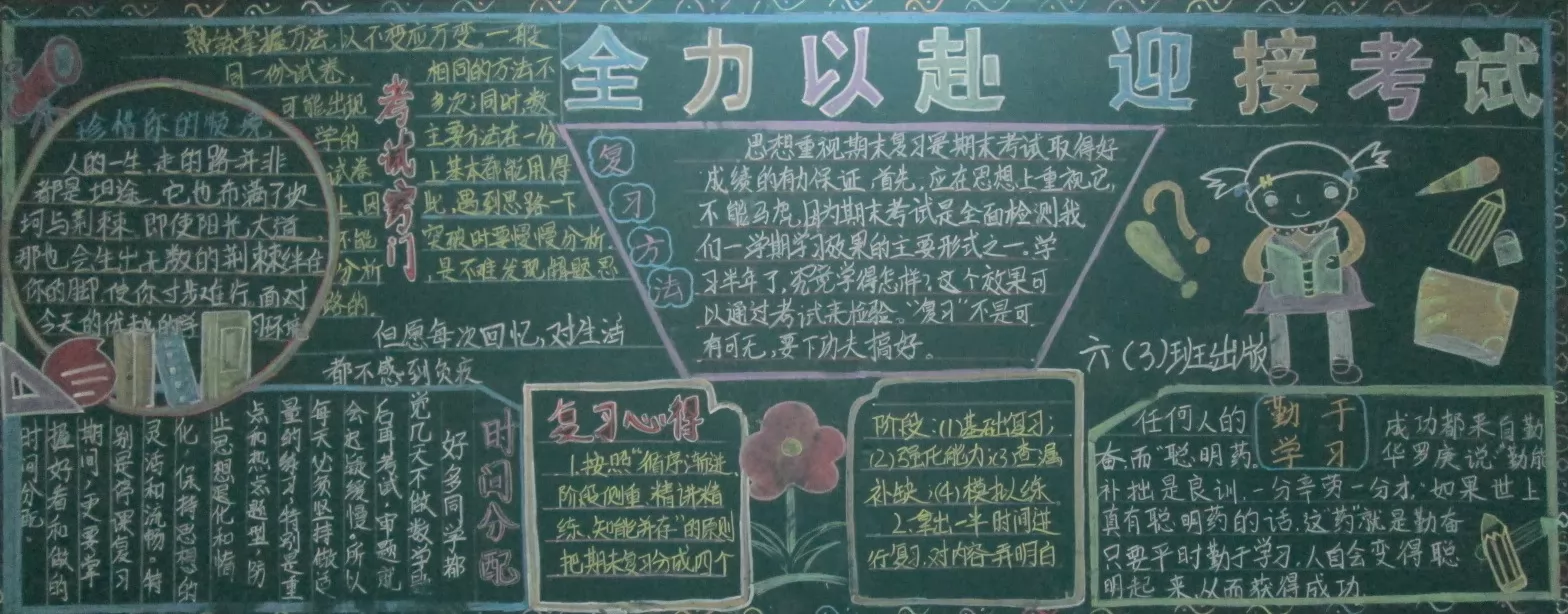 全力以赴 迎接考试
珍惜你的
人的一生,走的路并非
都是坦途,它也布满了坎
坷与荆棘,即使阳光大道
那也会生出无数的荆棘绊住
你的脚,使你寸步难行,面对
今天的优越的学 的环境
考试窍门
熟练掌握方法,以不变应万变,一般
同一份试卷, 相同的方法不
可能出现 多次;同时数
学的 主要方法在一份
试卷 上基本都能用得
上,因 此,遇到思路一下
不能 突破时要慢慢分析
分析 ,是不难发现解题思
路的
但愿每次回忆,对生活
都不感到负疚
复习方法
思想重视期末复习是期末考试取得好
成绩的有力保证,首先,应在思想上重视它,
不能马虎,因为期末考试是全面检测我
们一学期学习效果的主要形式之一。学
习半年了,究竟学得怎样?这个效果可
以通过考试来检验。“复习”不是可
有可无,要下功夫搞好。
六(3)班出版
时间分配
好多同学都
觉几天不做数学卷
后再考试,审题就
会迟疑缓慢。所以
每天必须坚持做适
量的练习,特别是重
点和热点题型,防
止思想退化和惰
化,保持思想的
灵活和流畅,特
别是停课复习
期间,更要掌
握好看和做的
时间分配。
复习心得
1.按照“循序渐进,
阶段侧重,精讲精
练,知能并存”的原则
把期末复习分成四个
阶段:(1)基础复习;
(2)强化能力;(3)查漏
补缺;(4)模拟练
2.拿出一半时间进
行复习,对内容弄明白
勤于学习
任何人的 成功都来自勤
奋,而“聪明药。 华罗庚说“勤能
补拙是良训,一分辛劳一分才”如果世上
真有聪明药的话,这“药”就是勤奋
只要平时勤于学习,人自会变得聪
明起来,从而获得成功